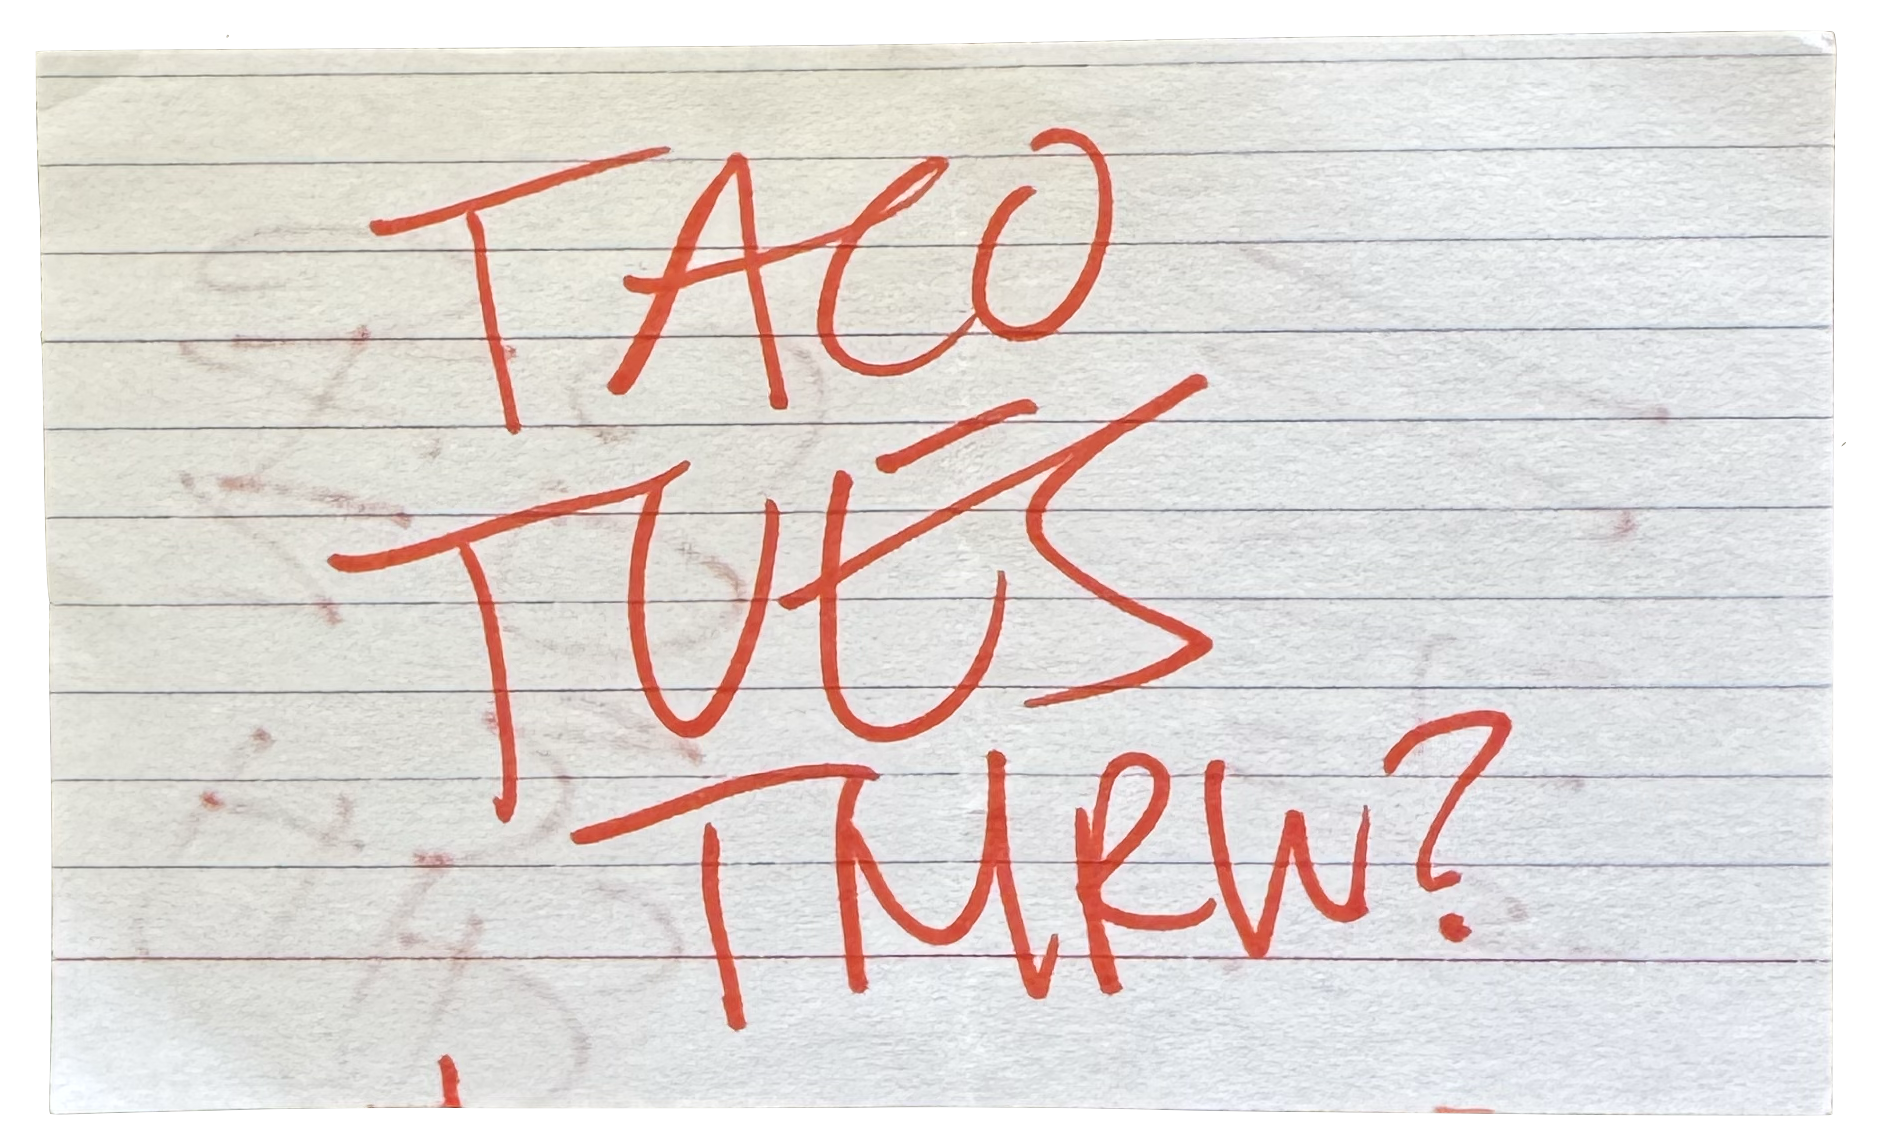 TACO
TUES
TMRW?